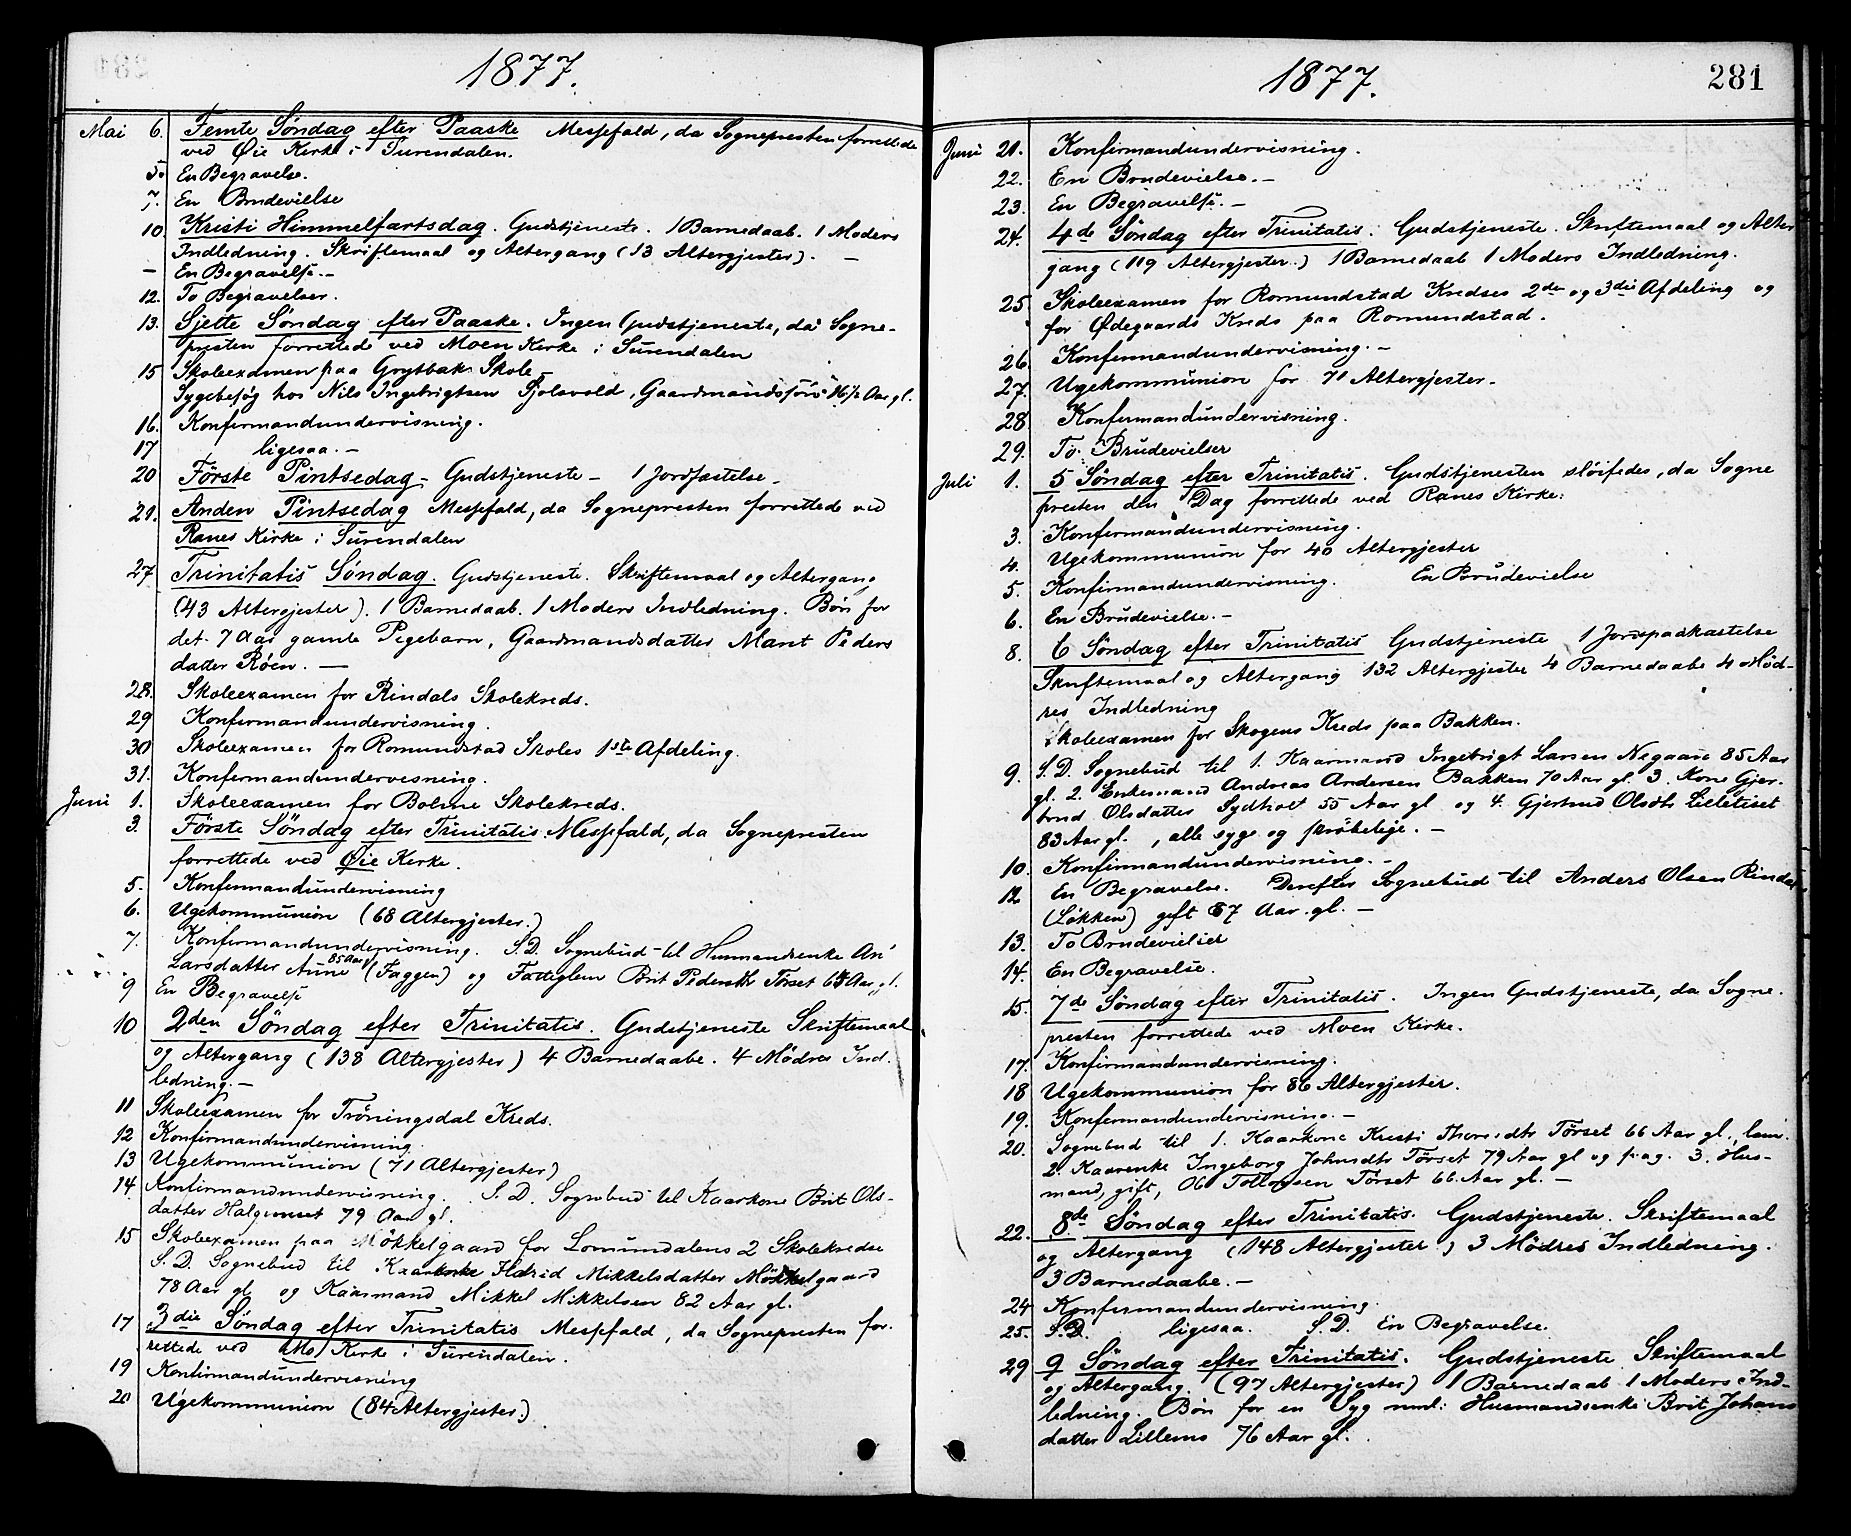 1877.
Mai 6. Femte Söndag efter Paaske Messefald, da Sognepresten forrettede
ved Øie Kirke i Surendalen.
5. En Begravelse.
7. En Brudevielse
10. Kristi Himmelfartsdag. Gudstjeneste. 1 Barnedaab. 1 Moders
Indledning. Skriftemaal og Altergang (13 Altergjester). —
— En Begravelse. —
12. To Begravelser.
13. Sjette Söndag efter Paaske. Ingen Gudstjeneste, da Sogne-
presten forrettede ved Moen Kirke i Surendalen
15 Skoleexamen paa Grytbak Skole —
Sygebesøg hos Nils Ingebrigtsen Gaardmandssøn 16½ Aar gl.
16. Konfirmandundervisning.
17 ligesaa. —
20 Förste Pintsedag — Gudstjeneste — 1 Jordfæstelse —
21. Anden Pintsedag Messefald, da Sognepresten forrettede ved
Ranes Kirke i Surendalen
27 Trinitatis Söndag. Gudstjeneste. Skriftemaal og Altergang
(43 Altergjester). 1 Barnedaab. 1 Moders Indledning. Bön for
det 7 Aar gamle Pigebarn, Gaardmandsdatter Marit Peders
datter Röen. —
28. Skoleexamen for Rindals Skolekreds.
29 Konfirmandundervisning.
30 Skoleexamen for Romundstad Skoles 1ste Afdeling.
31. Konfirmandundervisning.
Juni 1. Skoleexamen for Bolme Skolekreds.
3. Förste Söndag efter Trinitatis. Messefald, da Sognepresten
forrettede ved Øie Kirke.
5. Konfirmandundervisning
6. Ugekommunion (68 Altergjester.)
7. Konfirmandundervisning. S. D. Sognebud til Husmandsenke Ane
Larsdatter Aune 85 Aar gl (Faggen) og Fattiglem Brit Pedersdtr Törset 68 Aar gl.
9 En Begravelse
10 2den Söndag efter Trinitatis. Gudstjeneste Skriftemaal
og Altergang (138 Altergjester) 4 Barnedaabe. 4 Mödres Ind-
ledning. —
11 Skoleexamen for Tröningsdal Kreds.
12 Konfirmandundervisning.
13 Ugekommunion (71 Altergjester)
14. Konfirmandundervisning. S. D. Sognebud til Kaarkone Brit Ols-
datter 79 Aar gl.
15 Skoleexamen paa Mökkelgaard for Lomundalens 2 Skolekredse
S. D. Sognebud til Kaarenke Mikkelsdatter Mökkelgaard
78 Aar gl og Kaarmand Mikkel Mikkelsen 82 Aar gl.
17 3die Söndag efter Trinitatis Messefald, da Sognepresten for-
rettede ved Mo Kirke i Surendalen.
19 Konfirmandundervisning
20 Ugekommunion (84 Altergjester.)
1877.
281
Juni 21. Konfirmandundervisning.
22. En Brudevielse. —
23. En Begravelse. —
24. 4de Söndag efter Trinitatis. Gudstjeneste. Skriftemaal og Alter
gang (119 Altergjester.) 1 Barnedaab 1 Moders Indledning.
25 Skoleexamen for Romundstad Kredses 2den og 3die Afdeling og
for Ødegaards Kreds paa Romundstad.
26. Konfirmandundervisning. —
27. Ugekommunion for 71 Altergjester.
28 Konfirmandundervisning.
29. To Brudevielser
Juli 1. 5 Söndag efter Trinitatis. Gudstjenesten slöifedes, da Sogne
presten den Dag forrettede ved Ranes Kirke.
3. Konfirmandundervisning.
4. Ugekommunion for 40 Altergjester
5. Konfirmandundervisning. En Brudevielse
6. En Brudevielse. —
8. 6 Söndag efter Trinitatis Gudstjeneste 1 Jordspaakastelse
Skriftemaal og Altergang 132 Altergjester 4 Barnedaabe 4 Möd-
res Indledning
Skoleexamen for Skogens Kreds paa Bakken.
9. S. D. Sognebud til 1. Kaarmand Ingebrigt Larsen Negaard 85 Aar
gl. 2. Enkemand Andreas Andersen Bakken 70 Aar gl. 3. Kone Gjer-
trud Olsdatter Sydholt 55 Aar gl og 4. Gjertrud Olsdtr Lilletiset
83 Aar gl., alle syge og skröbelige. —
10. Konfirmandundervisning. —
12 En Begravelse. Derefter Sognebud til Anders Olsen Rindal
(Løkken) gift 87 Aar gl. —
13. To Brudevielser
14. En Begravelse.
15. 7de Söndag efter Trinitatis. Ingen Gudstjeneste, da Sogne-
presten forrettede ved Moen Kirke.
17. Konfirmandundervisning.
18 Ugekommunion for 86 Altergjester.
19. Konfirmandundervisning. —
20. Sognebud til 1. Kaarkone Kristi Törset 66 Aar gl., lam.
2. Kaarenke Ingeborg Johnsdtr Törset 79 Aar gl og svag. 3. Hus-
mand, gift, Ole Tollefsen Törset 66 Aar gl. —
22. 8de Söndag efter Trinitatis. Gudstjeneste. Skriftemaal
og Altergang (148 Altergjester) 3 Mödres Indledning.
3 Barnedaabe. —
24 Konfirmandundervisning.
25. S. D. ligesaa. S. D. En Begravelse.
29 9 Söndag efter Trinitatis. Gudstjeneste Skriftemaal
og Altergang. (97 Altergjester) 1 Barnedaab 1 Moders Ind-
ledning. Bön for en Syg nml: Husmandsenke Brit Johans
datter Lillemo 76 Aar gl.